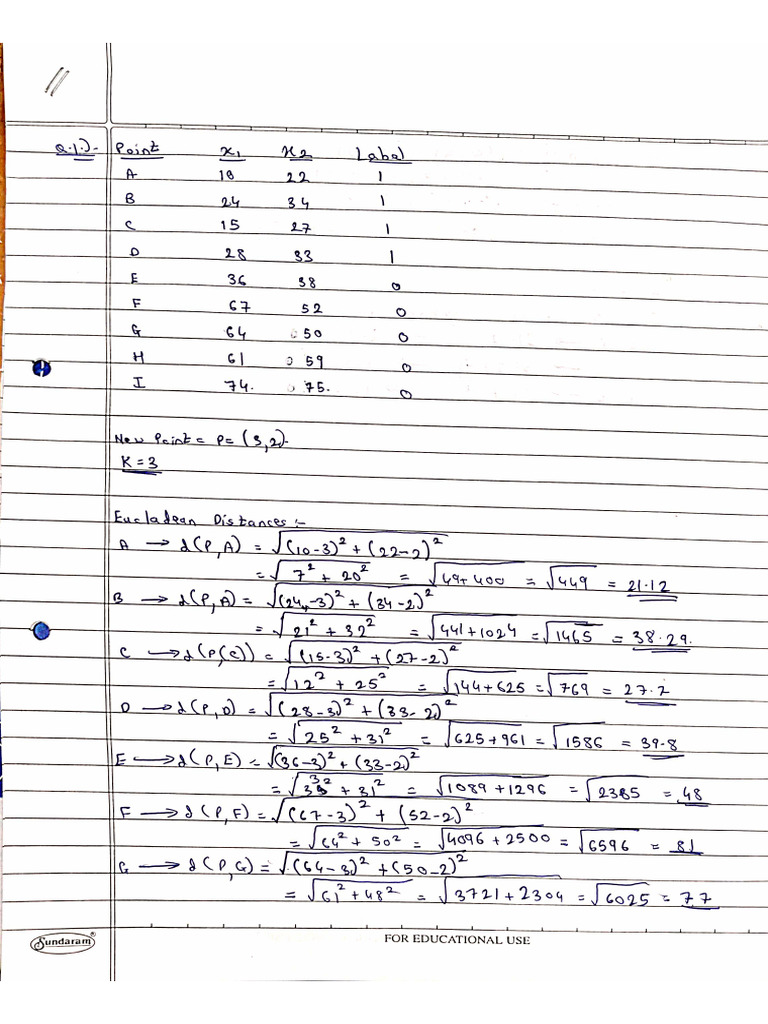 Q.1.)- Point x1 x2 Label
A 10 22 1
B 24 34 1
C 15 27 1
D 28 33 1
E 36 38 0
F 67 52 0
G 64 50 0
H 61 59 0
I 74. 75. 0
New Point = P= (3,2).
K = 3
Eucladean Distances :-
A → d(P,A) = √(10-3)² + (22-2)²
= √7² + 20² = √49+400 = √449 = 21.12
B → d(P,A) = √(24-3)² + (34-2)²
= √21² + 32² = √441+1024 = √1465 = 38.29.
C → d(P,(C)) = √(15-3)² + (27-2)²
= √12² + 25² = √144+625 = √769 = 27.7
D → d(P,D) = √(28-3)² + (33-2)²
= √25² + 31² = √625+961 = √1586 = 39.8
E → d(P,E) = √(36-3)² + (33-2)²
= √33² + 31² = √1089+1296 = √2385 = 48
F → d(P,F) = √(67-3)² + (52-2)²
= √64² + 50² = √4096+2500 = √6596 = 81
G → d(P,G) = √(64-3)² + (50-2)²
= √61² + 48² = √3721+2304 = √6025 = 77
Sundaram® FOR EDUCATIONAL USE